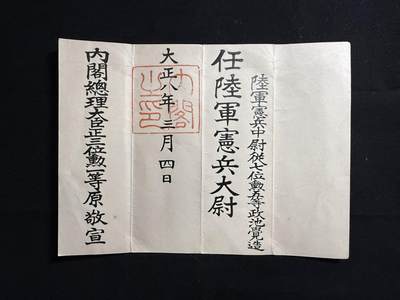 陸軍憲兵中尉從七位勲五等政池覺造
任陸軍憲兵大尉
大正八年三月四日
内閣之印
内閣總理大臣正三位勲一等原敬宣